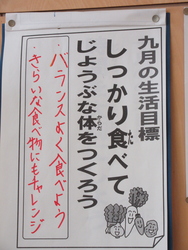 九月の生活目標
しっかり食べて
じょうぶな体をつくろう
・バランスよく食べよう
・きらいな食べ物にもチャレンジ